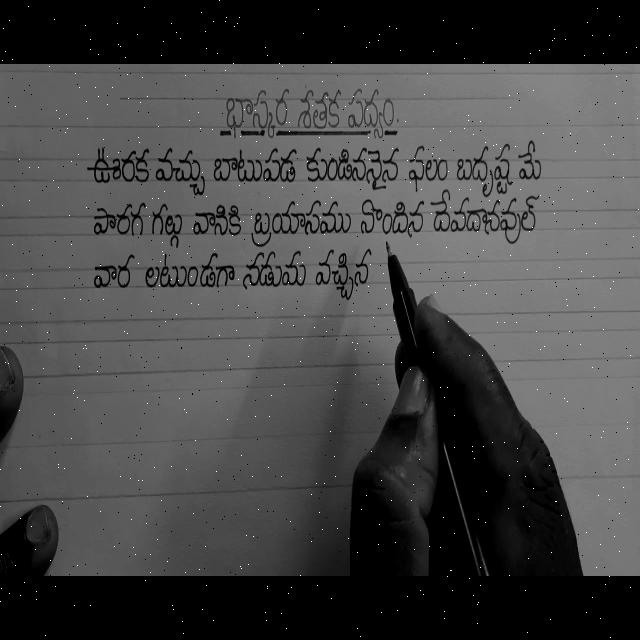 భాస్కర శతక పద్యం.
ఊరక వచ్చు బాటుపడ కుండిననైన ఫలం బదృష్ట మే
పారగ గల్గు వానికి బ్రయాసము నొందిన దేవదానవుల్
వార లటుండగా నడుమ వచ్చిన